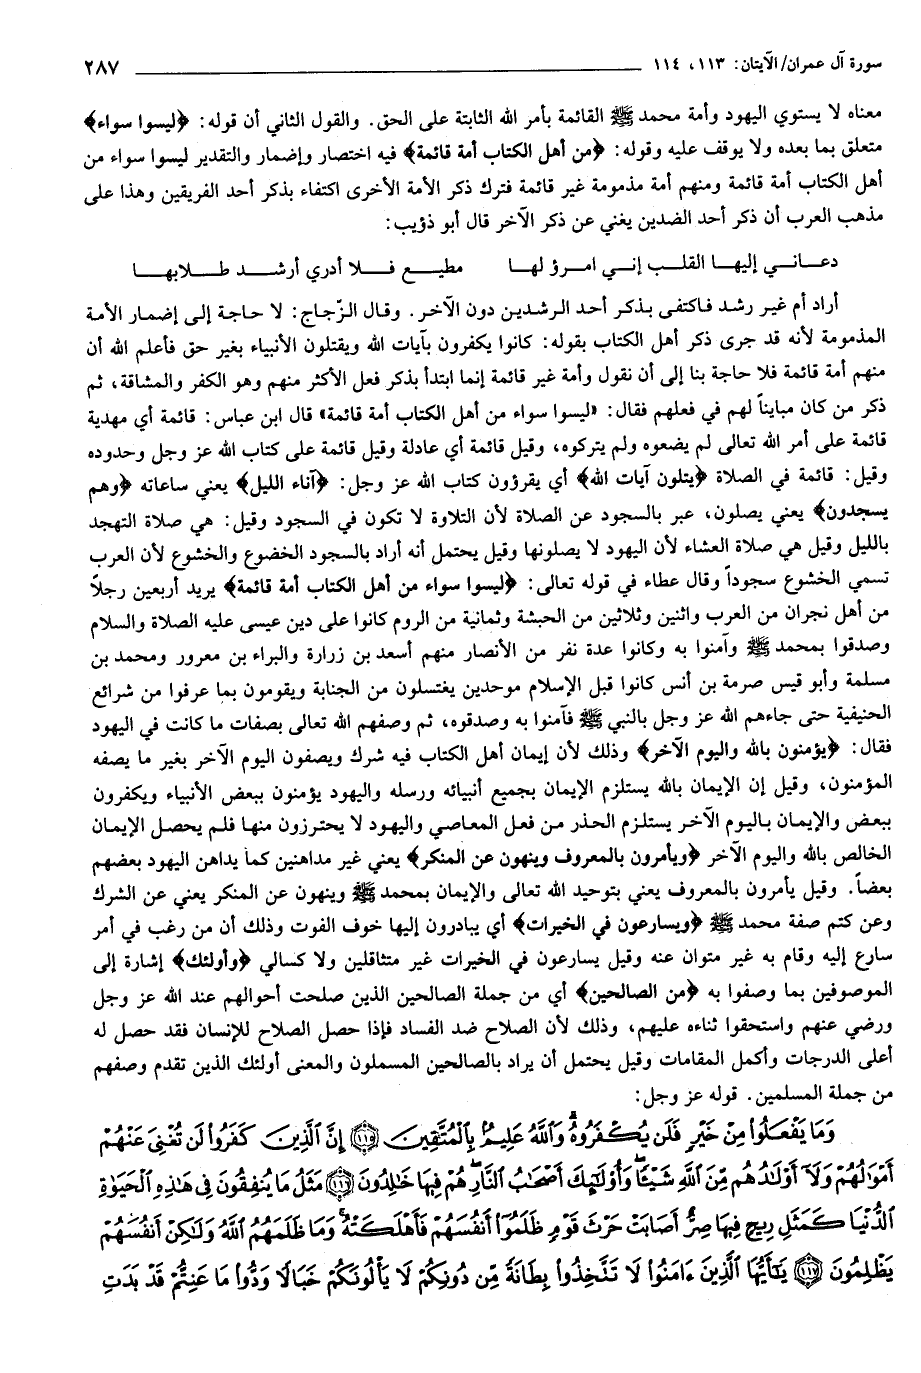 سورة آل عمران/الآيتان: ١١٣، ١١٤ ٢٨٧
معناه لا يستوي اليهود وأمة محمد ﷺ القائمة بأمر الله الثابتة على الحق. والقول الثاني أن قوله: ﴿ليسوا سواء﴾
متعلق بما بعده ولا يوقف عليه وقوله: ﴿من أهل الكتاب أمة قائمة﴾ فيه اختصار وإضمار والتقدير ليسوا سواء من
أهل الكتاب أمة قائمة ومنهم أمة مذمومة غير قائمة فترك ذكر الأمة الأخرى اكتفاء بذكر أحد الفريقين وهذا على
مذهب العرب أن ذكر أحد الضدين يغني عن ذكر الآخر قال أبو ذؤيب:
دعـانـي إليهـا القلـب إنـي امـرؤ لهـا مطيـع فـلا أدري أرشـد طـلابهـا
أراد أم غيـر رشد فـاكتفى بـذكر أحـد الـرشـديـن دون الآخـر. وقـال الـزّجـاج: لا حـاجـة إلـى إضمـار الأمـة
المذمومة لأنه قد جرى ذكر أهل الكتاب بقوله: كانوا يكفرون بآيات الله ويقتلون الأنبياء بغير حق فأعلم الله أن
منهم أمة قائمة فلا حاجة بنا إلى أن نقول وأمة غير قائمة إنما ابتدأ بذكر فعل الأكثر منهم وهو الكفر والمشاقة، ثم
ذكر من كان مبايناً لهم في فعلهم فقال: «ليسوا سواء من أهل الكتاب أمة قائمة» قال ابن عباس: قائمة أي مهدية
قائمة على أمر الله تعالى لم يضعوه ولم يتركوه، وقيل قائمة أي عادلة وقيل قائمة على كتاب الله عز وجل وحدوده
وقيل: قائمة في الصلاة ﴿يتلون آيات الله﴾ أي يقرؤون كتاب الله عز وجل: ﴿آناء الليل﴾ يعني ساعاته ﴿وهم
يسجدون﴾ يعني يصلون، عبر بالسجود عن الصلاة لأن التلاوة لا تكون في السجود وقيل: هي صلاة التهجد
بالليل وقيل هي صلاة العشاء لأن اليهود لا يصلونها وقيل يحتمل أنه أراد بالسجود الخضوع والخشوع لأن العرب
تسمي الخشوع سجوداً وقال عطاء في قوله تعالى: ﴿ليسوا سواء من أهل الكتاب أمة قائمة﴾ يريد أربعين رجلاً
من أهل نجران من العرب واثنين وثلاثين من الحبشة وثمانية من الروم كانوا على دين عيسى عليه الصلاة والسلام
وصدقوا بمحمد ﷺ وآمنوا به وكانوا عدة نفر من الأنصار منهم أسعد بن زرارة والبراء بن معرور ومحمد بن
مسلمة وأبو قيس صرمة بن أنس كانوا قبل الإسلام موحدين يغتسلون من الجنابة ويقومون بما عرفوا من شرائع
الحنيفية حتى جاءهم الله عز وجل بالنبي ﷺ فآمنوا به وصدقوه، ثم وصفهم الله تعالى بصفات ما كانت في اليهود
فقال: ﴿يؤمنون بالله واليوم الآخر﴾ وذلك لأن إيمان أهل الكتاب فيه شرك ويصفون اليوم الآخر بغير ما يصفه
المؤمنون، وقيل إن الإيمان بالله يستلزم الإيمان بجميع أنبيائه ورسله واليهود يؤمنون ببعض الأنبياء ويكفرون
ببعض والإيمان باليوم الآخر يستلزم الحذر من فعل المعاصي واليهود لا يحترزون منها فلم يحصل الإيمان
الخالص بالله واليوم الآخر ﴿ويأمرون بالمعروف وينهون عن المنكر﴾ يعني غير مداهنين كما يداهن اليهود بعضهم
بعضاً. وقيل يأمرون بالمعروف يعني بتوحيد الله تعالى والإيمان بمحمد ﷺ وينهون عن المنكر يعني عن الشرك
وعن كتم صفة محمد ﷺ ﴿ويسارعون في الخيرات﴾ أي يبادرون إليها خوف الفوت وذلك أن من رغب في أمر
سارع إليه وقام به غير متوان عنه وقيل يسارعون في الخيرات غير متثاقلين ولا كسالي ﴿وأولئك﴾ إشارة إلى
الموصوفين بما وصفوا به ﴿من الصالحين﴾ أي من جملة الصالحين الذين صلحت أحوالهم عند الله عز وجل
ورضي عنهم واستحقوا ثناءه عليهم، وذلك لأن الصلاح ضد الفساد فإذا حصل الصلاح للإنسان فقد حصل له
أعلى الدرجات وأكمل المقامات وقيل يحتمل أن يراد بالصالحين المسملون والمعنى أولئك الذين تقدم وصفهم
من جملة المسلمين. قوله عز وجل:
وَمَا يَفْعَلُوا مِنْ خَيْرٍ فَلَن يُكْفَرُوهُ وَاللَّهُ عَلِيمٌ بِالْمُتَّقِينَ ﴿١١٥﴾ إِنَّ الَّذِينَ كَفَرُوا لَن تُغْنِيَ عَنْهُمْ
أَمْوَالُهُمْ وَلَا أَوْلَادُهُم مِّنَ اللَّهِ شَيْئًا وَأُولَٰئِكَ أَصْحَابُ النَّارِ هُمْ فِيهَا خَالِدُونَ ﴿١١٦﴾ مَثَلُ مَا يُنفِقُونَ فِي هَٰذِهِ الْحَيَوٰةِ
الدُّنْيَا كَمَثَلِ رِيحٍ فِيهَا صِرٌّ أَصَابَتْ حَرْثَ قَوْمٍ ظَلَمُوا أَنفُسَهُمْ فَأَهْلَكَتْهُ وَمَا ظَلَمَهُمُ اللَّهُ وَلَٰكِنْ أَنفُسَهُمْ
يَظْلِمُونَ ﴿١١٧﴾ يَٰأَيُّهَا الَّذِينَ ءَامَنُوا لَا تَتَّخِذُوا بِطَانَةً مِّن دُونِكُمْ لَا يَأْلُونَكُمْ خَبَالًا وَدُّوا مَا عَنِتُّمْ قَدْ بَدَتِ